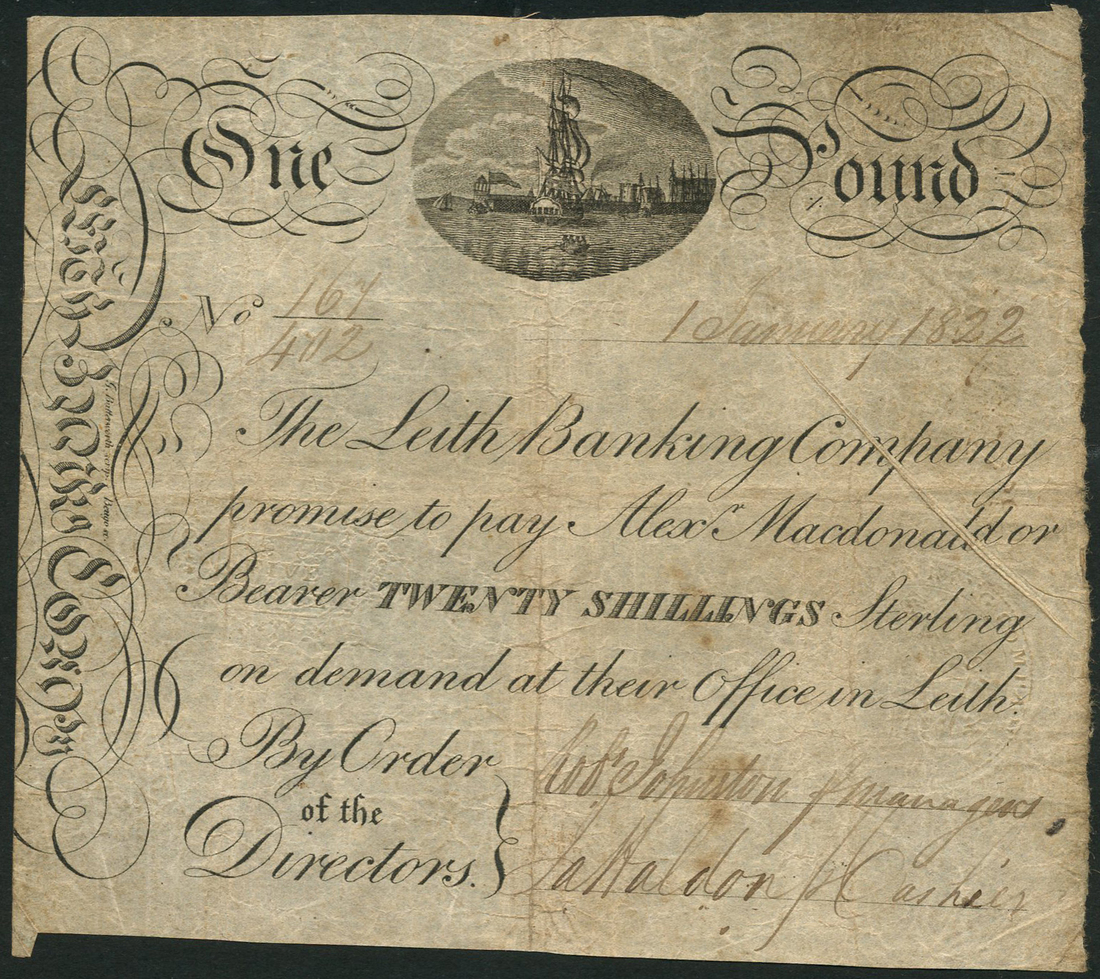 One Pound
No 167/402
1 January 1822
The Leith Banking Company
promise to pay Alexr. Macdonald or
Bearer TWENTY SHILLINGS Sterling
on demand at their Office in Leith.
By Order
of the
Directors.
Robt. Johnston p managers
Cashier